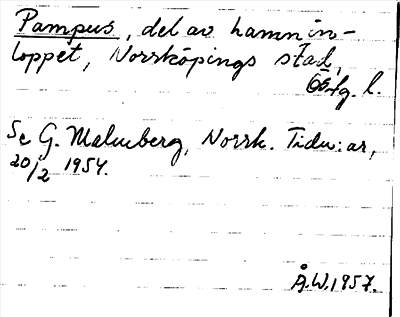 Pampus, del av hamnin-
loppet, Norrköpings stad,
Östg. l.
Se G. Malmberg, Norrk. Tidn:ar,
20/2 1954.
Å.W. 1957.